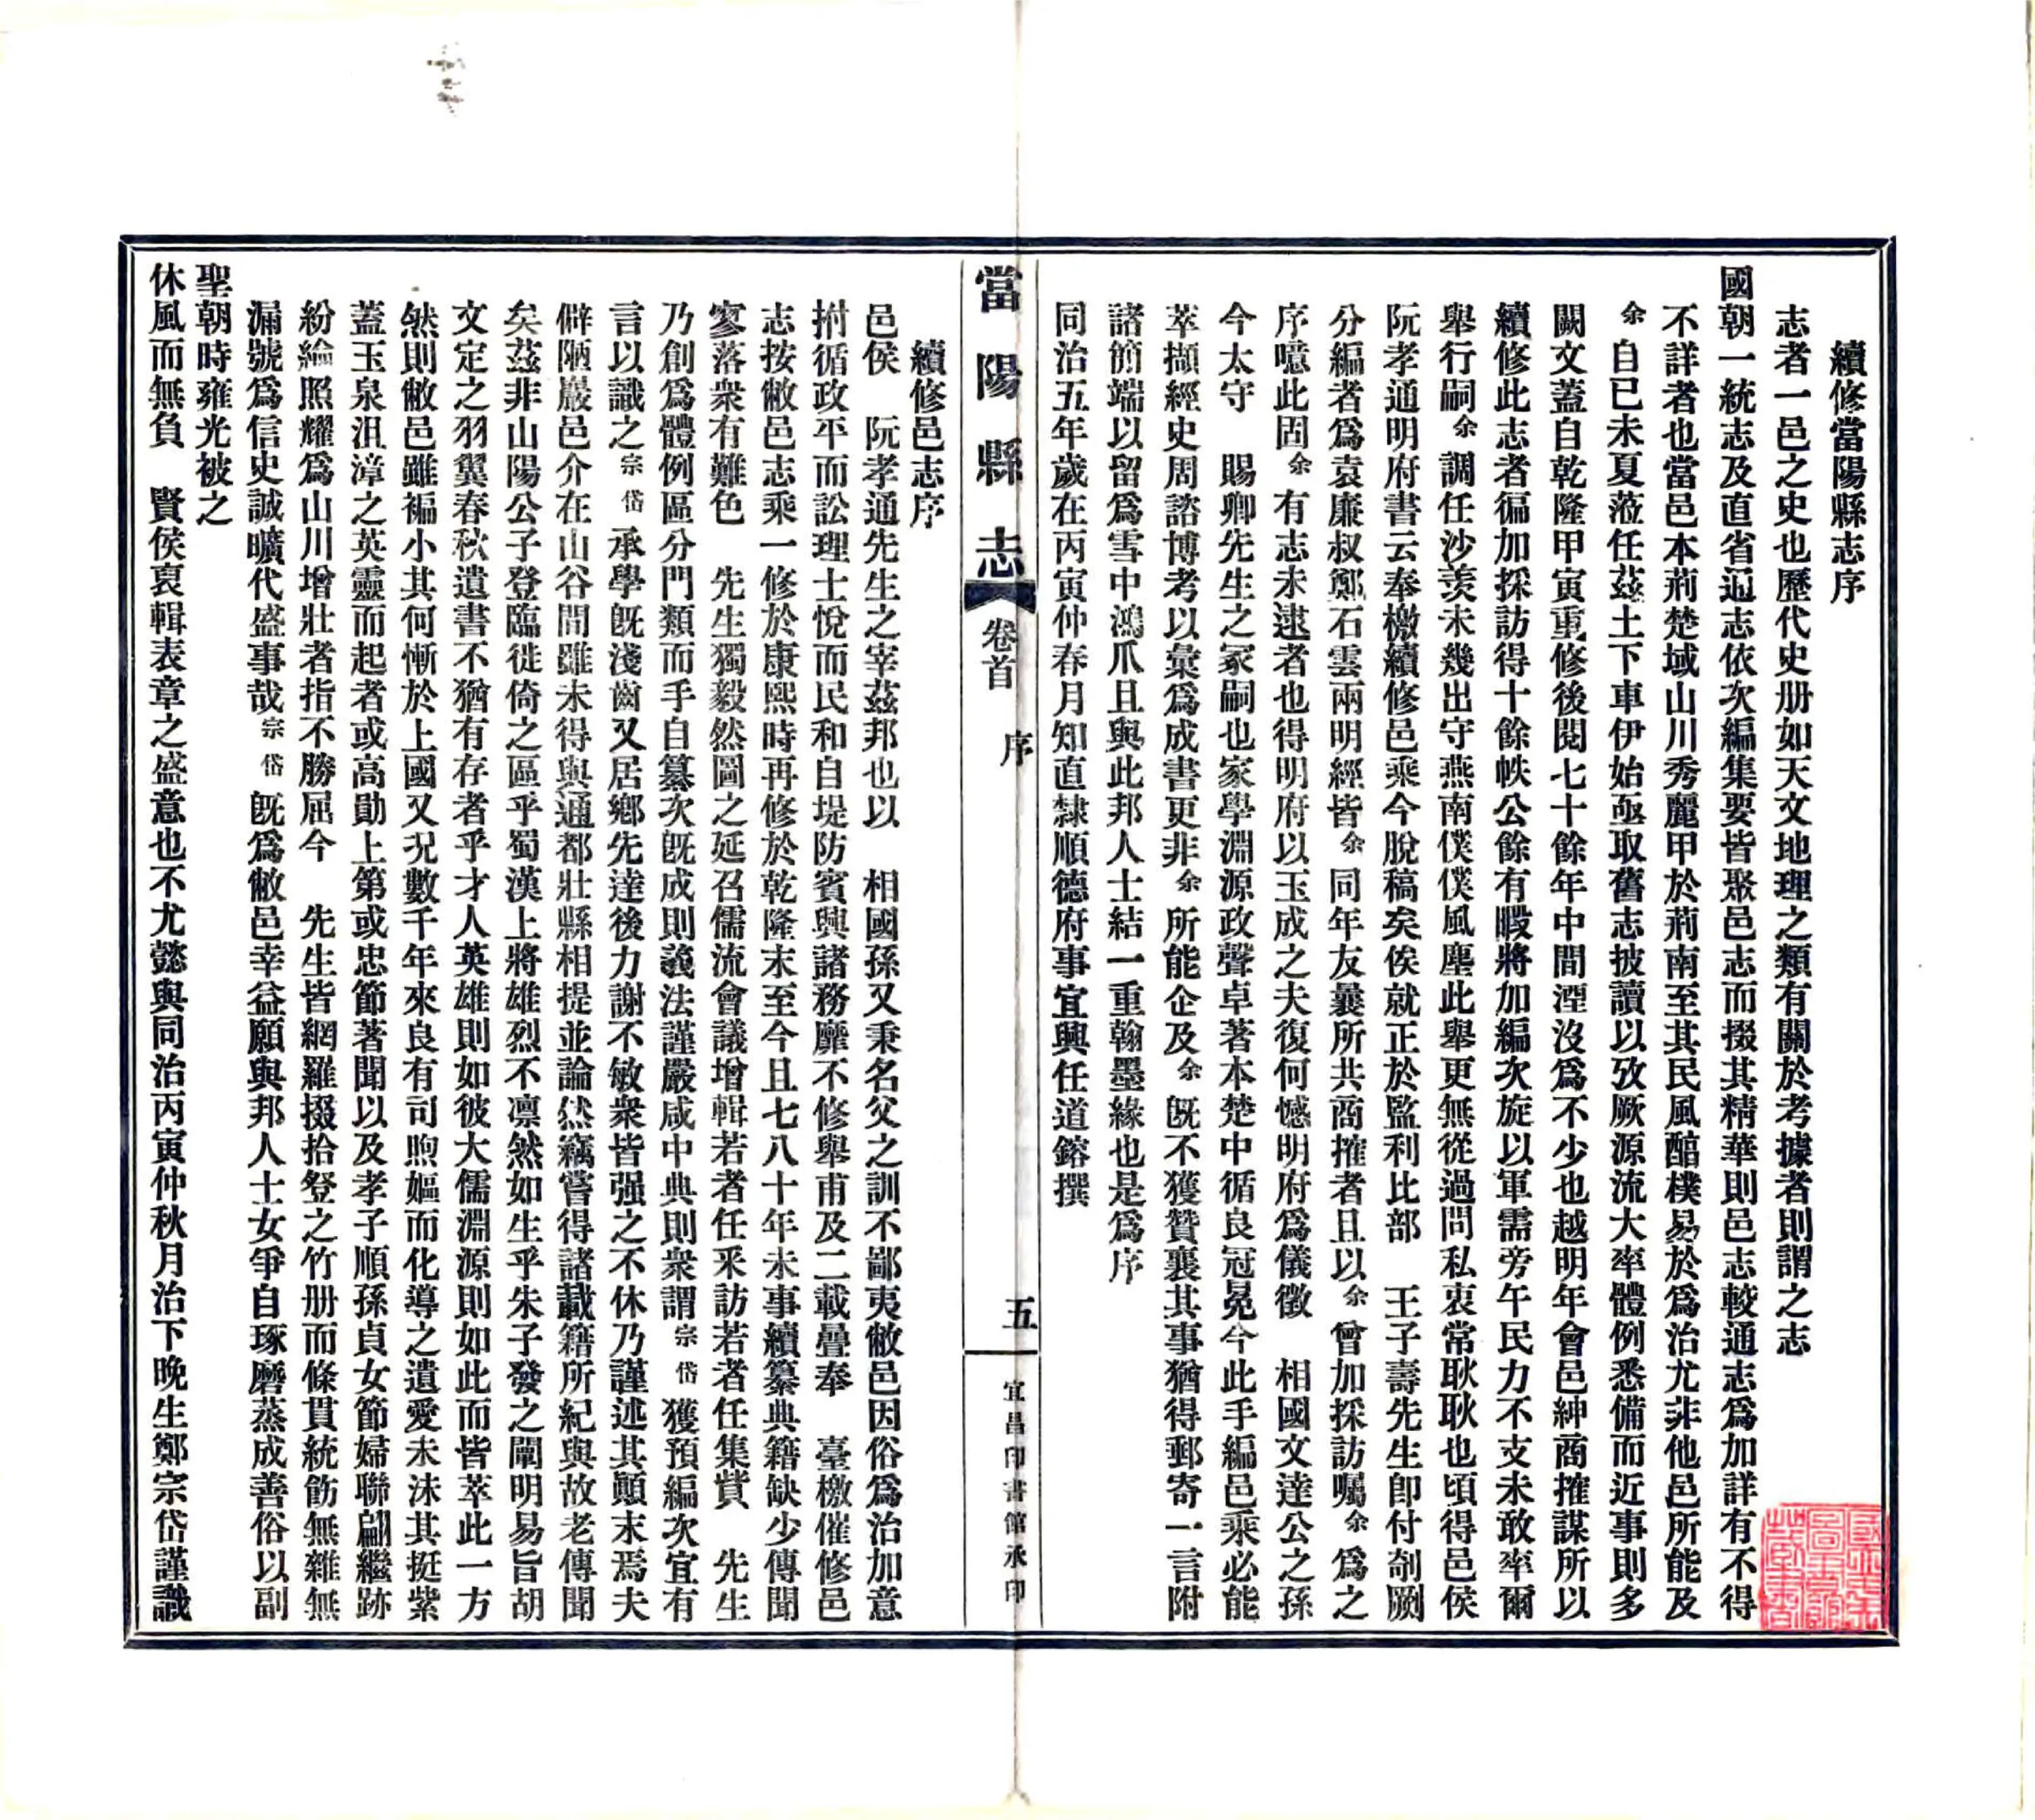 續修當陽縣志序
志者一邑之史也歷代史册如天文地理之類有關於考據者則謂之志
國朝一統志及直省通志依次編集要皆聚邑志而掇其精華則邑志較通志爲加詳有不得
不詳者也當邑本荊楚域山川秀麗甲於荊南至其民風醕樸易於爲治尤非他邑所能及
余自已未夏蒞任茲土下車伊始亟取舊志披讀以攷厥源流大率體例悉備而近事則多
闕文蓋自乾隆甲寅重修後閱七十餘年中間湮沒爲不少也越明年會邑紳商搉謀所以
續修此志者徧加採訪得十餘帙公餘有暇將加編次旋以軍需旁午民力不支未敢率爾
舉行嗣余調任沙羨未幾出守燕南僕僕風塵此舉更無從過問私衷常耿耿也頃得邑侯
阮孝通明府書云奉檄續修邑乘今脫稿矣俟就正於監利比部　王子壽先生卽付剞劂
分編者爲袁廉叔鄭石雲兩明經皆余同年友曩所共商搉者且以余曾加採訪囑余爲之
序噫此固余有志未逮者也得明府以玉成之夫復何憾明府爲儀徵　相國文達公之孫
今太守　賜卿先生之冢嗣也家學淵源政聲卓著本楚中循良冠冕今此手編邑乘必能
萃擷經史周諮博考以彙爲成書更非余所能企及余旣不獲贊襄其事猶得郵寄一言附
諸簡端以留爲雪中鴻爪且與此邦人士結一重翰墨緣也是爲序
同治五年歲在丙寅仲春月知直隸順德府事宜興任道鎔撰
當陽縣志
卷首
序
五
宜昌印書館承印
續修邑志序
邑侯　阮孝通先生之宰茲邦也以　相國孫又秉名父之訓不鄙夷敝邑因俗爲治加意
拊循政平而訟理士悅而民和自堤防賓興諸務靡不修舉甫及二載疊奉　臺檄催修邑
志按敝邑志乘一修於康熙時再修於乾隆末至今且七八十年未事續纂典籍缺少傳聞
寥落衆有難色　先生獨毅然圖之延召儒流會議增輯若者任采訪若者任集貲　先生
乃創爲體例區分門類而手自纂次旣成則義法謹嚴咸中典則衆謂宗岱獲預編次宜有
言以識之宗岱承學旣淺齒又居鄉先達後力謝不敏衆皆强之不休乃謹述其顛末焉夫
僻陋巖邑介在山谷間雖未得與通都壯縣相提並論然竊嘗得諸載籍所紀與故老傳聞
矣茲非山陽公子登臨徙倚之區乎蜀漢上將雄烈不凛然如生乎朱子發之闡明易旨胡
文定之羽翼春秋遺書不猶有存者乎才人英雄則如彼大儒淵源則如此而皆萃此一方
然則敝邑雖褊小其何慚於上國又况數千年來良有司煦嫗而化導之遺愛未沫其挺紫
蓋玉泉沮漳之英靈而起者或高勛上第或忠節著聞以及孝子順孫貞女節婦聯翩繼跡
紛綸照耀爲山川增壯者指不勝屈今　先生皆網羅掇拾登之竹册而條貫統飭無雜無
漏號爲信史誠曠代盛事哉宗岱旣爲敝邑幸益願與邦人士女爭自琢磨蒸成善俗以副
聖朝時雍光被之
休風而無負　賢侯裒輯表章之盛意也不尤懿與同治丙寅仲秋月治下晚生鄭宗岱謹識